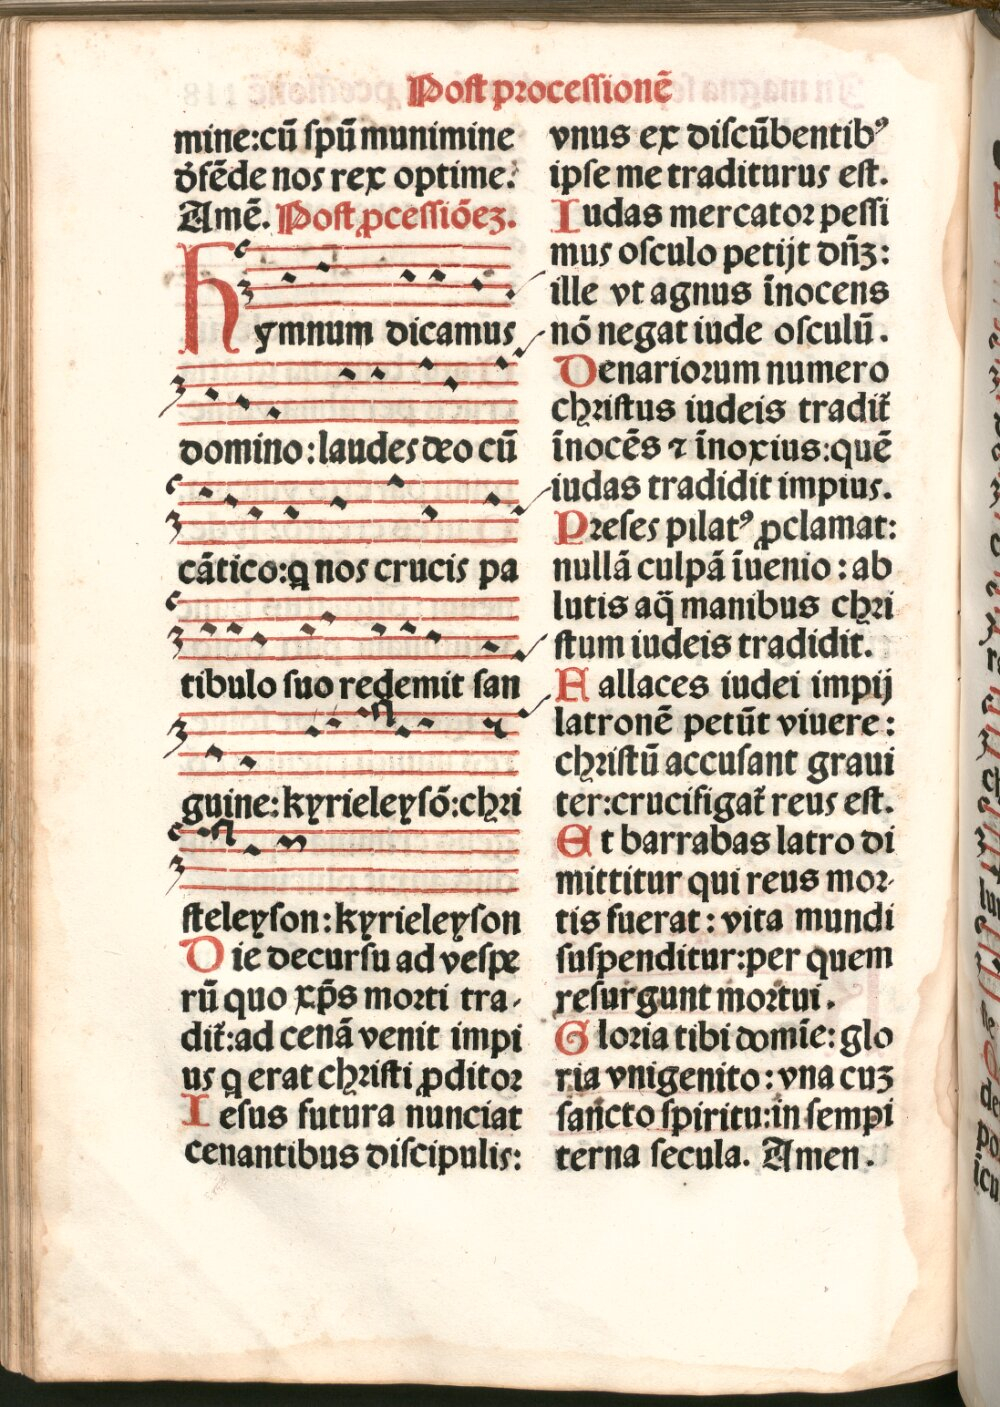 Post processionē
mine:cū spū munimine
d̄fēde nos rex optime.
Amē. Post ꝓcessiōeꝫ.
hymnum dicamus
domino:laudes deo cū
cātico:q nos crucis pa
tibulo suo redemit san
guine:kyrieleysō:chri
steleyson:kyrieleyson
Die decursu ad vespe
rū quo xp̄s morti tra-
dit̄:ad cenā venit impi
us q erat christi ꝓditor
Iesus futura nunciat
cenantibus discipulis:
vnus ex discūbentibꝰ
ipse me traditurus est.
Iudas mercator pessi
mus osculo petijt dn̄ꝫ:
ille vt agnus īnocens
nō negat iude osculū.
Denariorum numero
christus iudeis tradit̄
īnocēs ⁊ īnoxius:quē
iudas tradidit impius.
Preses pilatꝰ ꝓclamat:
nullā culpā īuenio:ab
lutis aq̄ manibus chri
stum iudeis tradidit.
Fallaces iudei impij
latronē petūt viuere:
christū accusant graui
ter:crucifigat̄ reus est.
Et barrabas latro di
mittitur qui reus mor-
tis fuerat:vita mundi
suspenditur:per quem
resurgunt mortui.
Gloria tibi domīe:glo
ria vnigenito:vna cuꝫ
sancto spiritu:in sempi
terna secula. Amen.